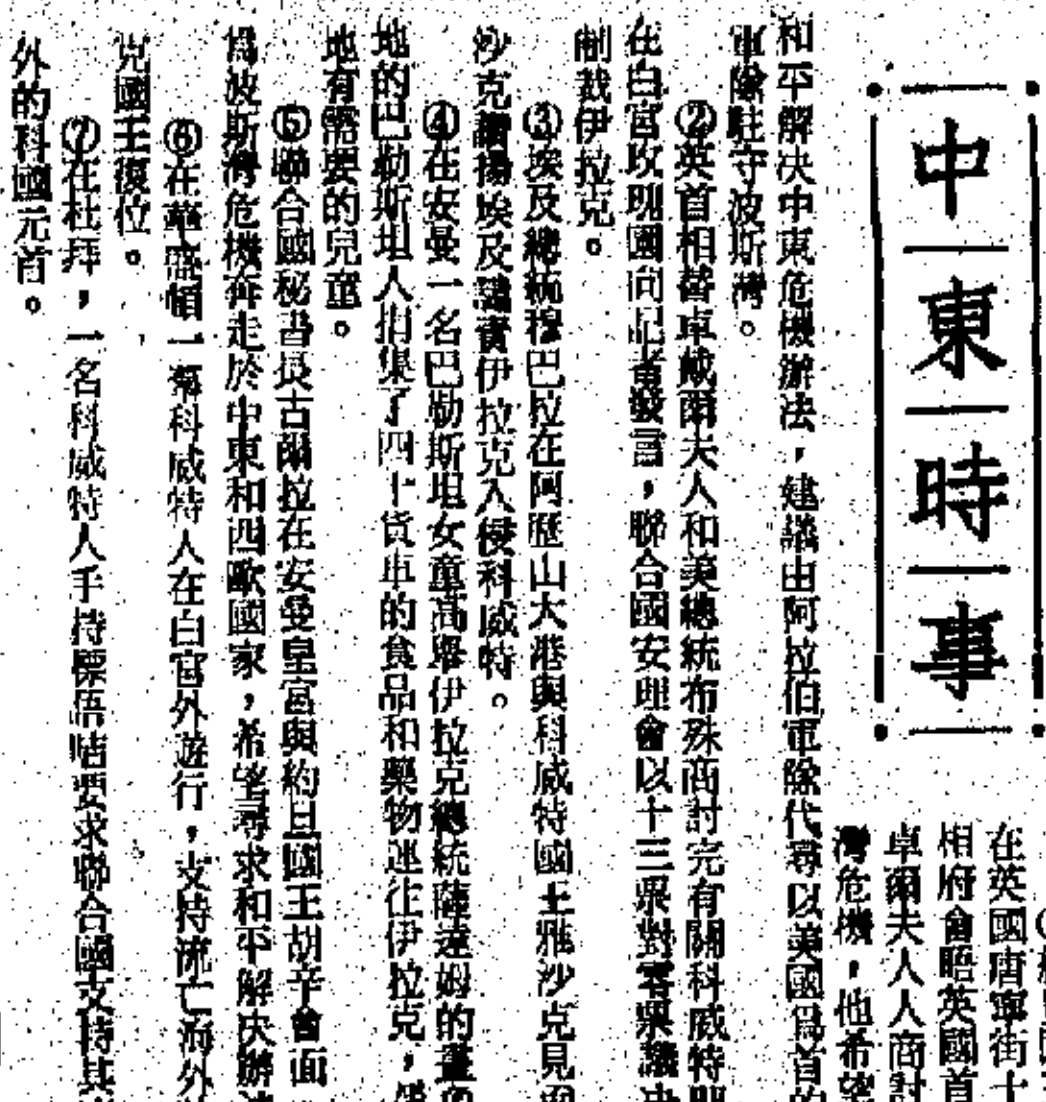 中東時事
在英國唐寧街十
相府會晤英國首
卓爾夫人人商討
灣危機，他希望
和平解决中東危機辦法，建議由阿拉伯軍隊代尋以美國爲首的
軍隊駐守波斯灣。
②英首相替卓戴爾夫人和美總統布殊商討完有關科威特
在白宮玫瑰園向記者發言，聯合國安理會以十三票對零票議决
制裁伊拉克。
③埃及總統穆巴拉在阿歷山大港與科威特國王雅沙克見面
沙克讚揚埃及譴責伊拉克入侵科威特。
④在安曼一名巴勒斯坦女童高舉伊拉克總統薩達姆的畫
地的巴勒斯坦人捐集了四十貨車的食品和藥物運往伊拉克，
地有需要的兒童。
⑤聯合國秘書長古爾拉在安曼皇宮與約旦國王胡辛會面
爲波斯灣危機奔走於中東和西歐國家，希望尋求和平解决辦
⑥在華盛頓一羣科威特人在白宮外遊行，支持流亡海外
克國王復位。
⑦在杜拜，一名科威特人手持標語咭要求聯合國支持其
外的科國元首。